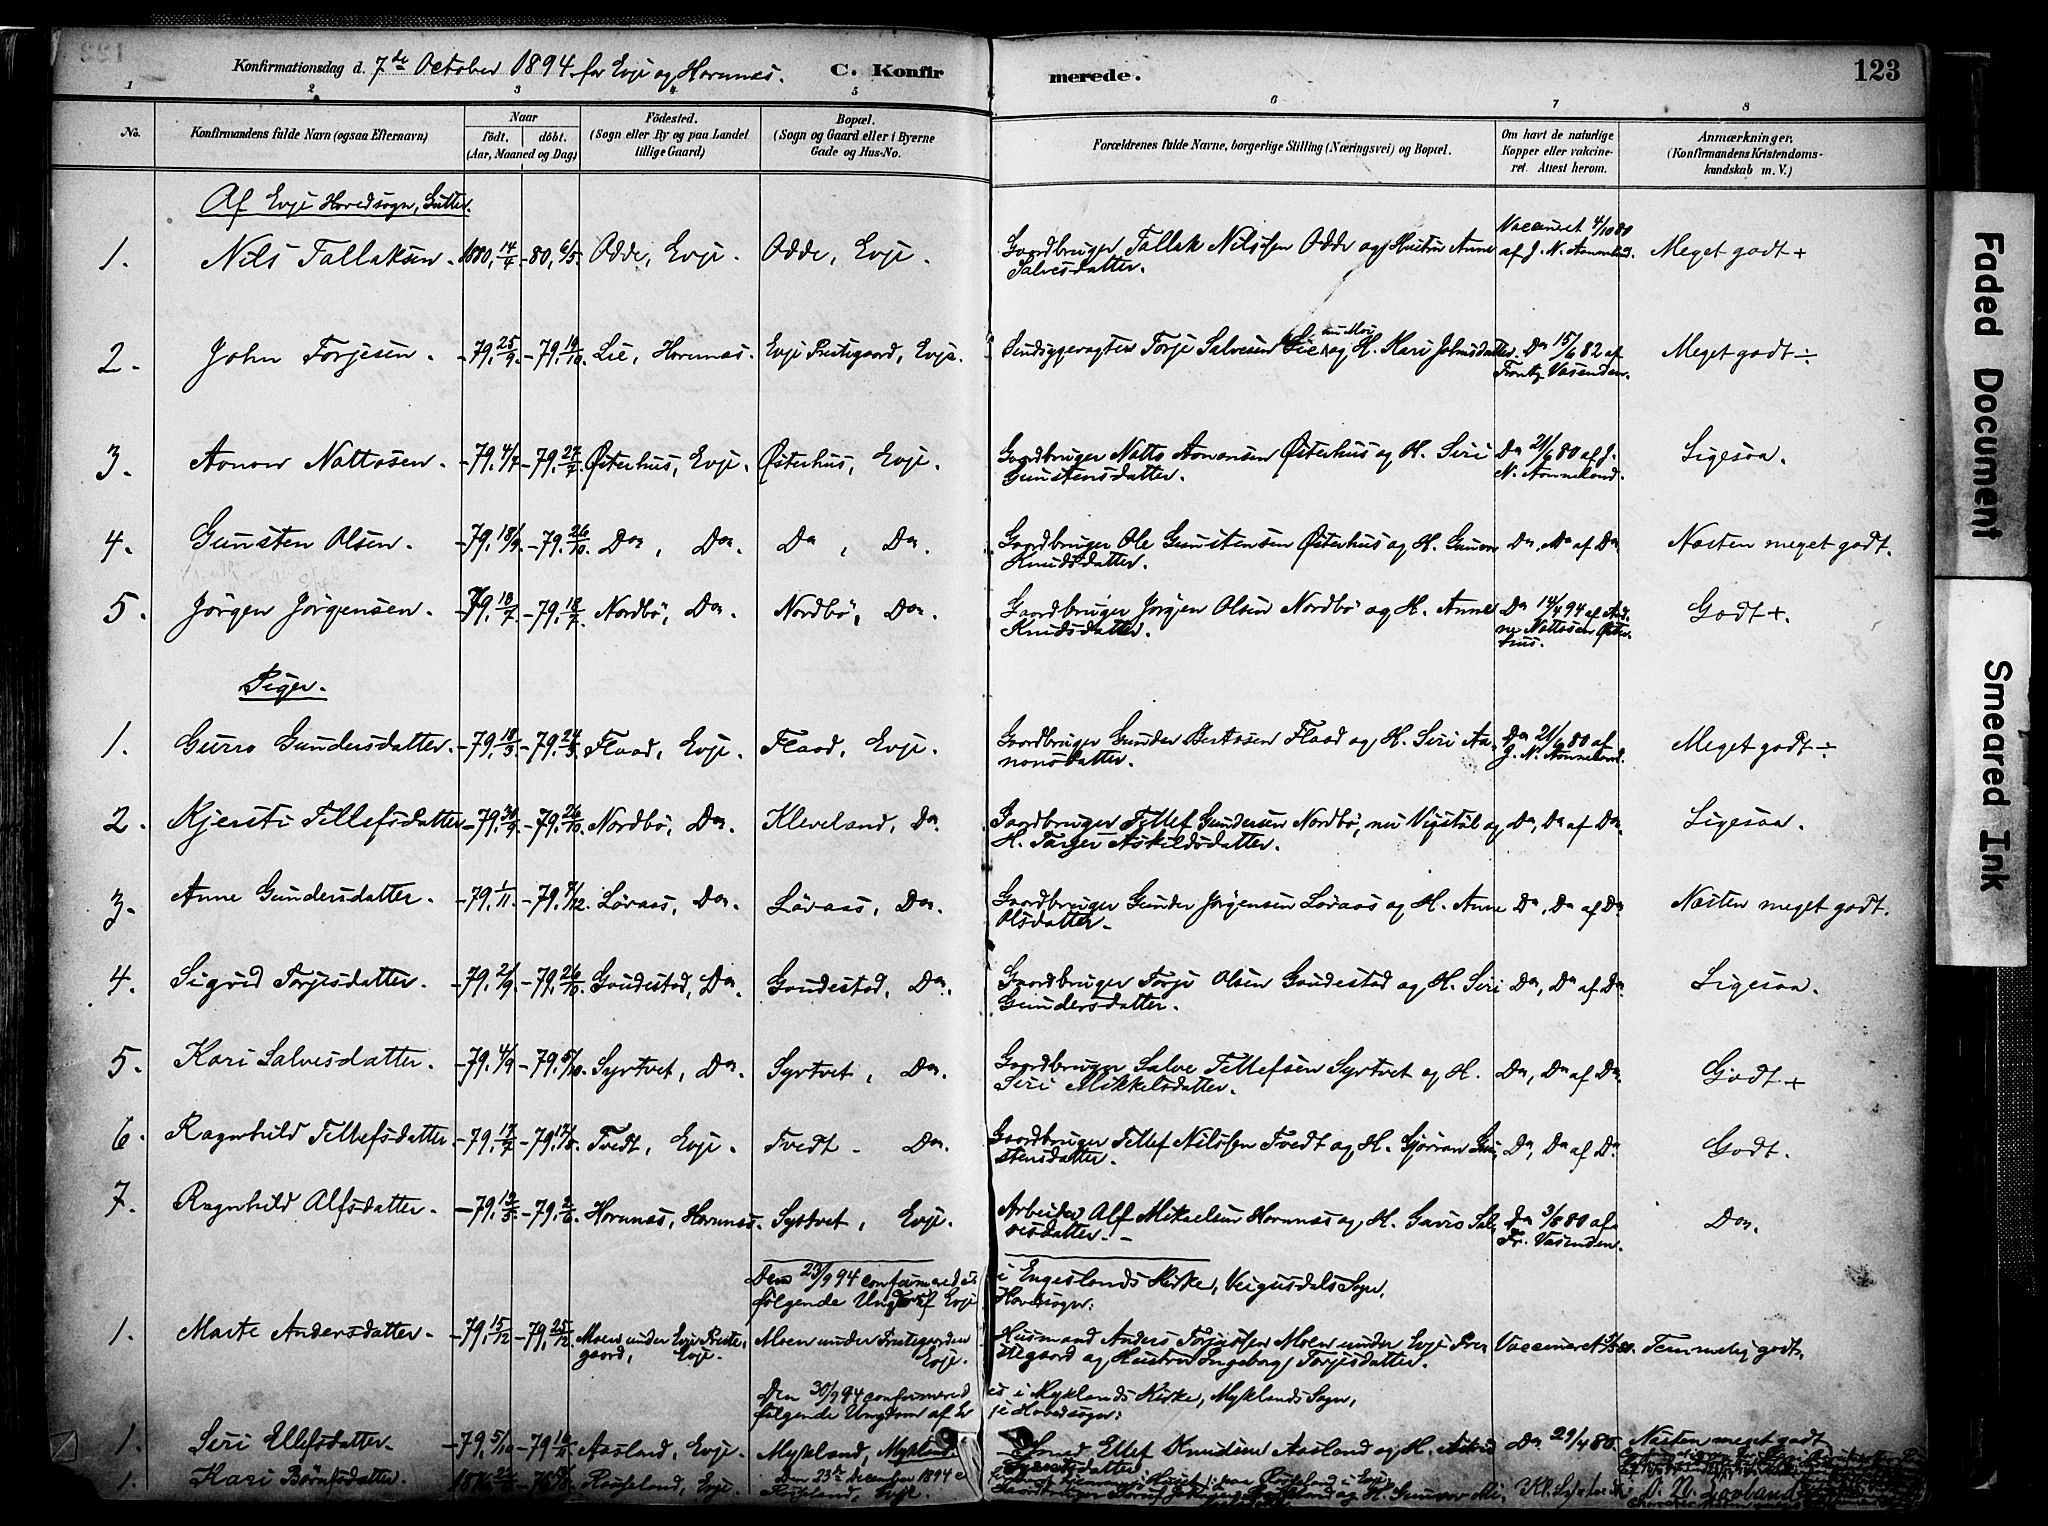 Konfirmationsdag d. 7de October 1894 for Evje og Hornnes. C. Konfirmerede. 123
1 2 3 4 5 6 7 8
No. Konfirmandens fulde Navn (ogsaa Efternavn) Naar födt. döbt. (Aar, Maaned og Dag) Födested. (Sogn eller By og paa Landet tillige Gaard) Bopæl. (Sogn og Gaard eller i Byerne Gade og Hus-No. Forældrenes fulde Navne, borgerlige Stilling (Næringsvei) og Bopæl. Om havt de naturlige Kopper eller vakcineret. Attest herom. Anmærkninger. (Konfirmandens Kristendomskundskab m. V.)
Af Evje Hovedsogn, Gutter.
1. Nils Tallaksen. 1880, 14/4 -80, 6/5. Odde, Evje. Odde, Evje. Gaardbruger Tallak Nilssen Odde og Hustru Anne Vaccineret 4/10 80 af J. N. Aanneland. Meget godt +
Salvesdatter.
2. John Torjesen. -79, 25/9. -79, 19/10. Lie, Hornnes. Evje Prestegaard, Evje. Torje Salvesen Lie nu Moi og H. Kari Johnsdatter. Do 15/6 82 af Meget godt ÷
Frantz Vasenden.
3. Aanon Nattosen. -79, 4/7 -79, 27/7. Østerhus, Evje. Østerhus, Evje. Gaardbruger Natto Aanonsen Østerhus og H. Siri Do 21/6 80 af J. Ligesaa.
Gunstensdatter. N. Aanneland.
4. Gunsten Olsen. -79, 18/9. -79, 26/10. Do, Do. Do, Do. Gaardbruger Ole Gunstensen Østerhus og H. Gunvor Do, Do af Do Næsten meget godt.
Knudsdatter.
5. Jörgen Jörgensen. -79, 18/7 -79, Nordbö, Do. Nordbö, Do. Gaardbruger Jörgen Olsen Nordbö og H. Anne Do 14/4 94 af Godt +.
Knudsdatter. Nattosen Østerhus.
Piger.
1. Gurro Gundersdatter. -79, 18/3 -79, Flaad, Evje. Flaad, Evje. Gaardbruger Gunder Bentsen Flaad og H. Siri Aa- Do 21/6 80 af Meget godt ÷
nonsdatter. J. N. Aanneland.
2. Kjersti Tellefsdatter -79, 30/9 -79, 26/10. Nordbö, Do. Kleveland, Do. Gaardbruger Tellef Gundersen Nordbö, nu Vigstöl og Do, Do af Do. Ligesaa.
H. Targer Askildsdatter.
3. Anne Gundersdatter. -79, 1/11. -79, 7/12. Lövaas, Do. Lövaas, Do. Gaardbruger Gunder Jörgensen Lövaas og H. Anne Do, Do af Do Næsten meget godt.
Olsdatter.
4. Sigrid Torjesdatter. -79, 2/9. -79, 26/10. Gaudestad, Do. Gaudestad, Do. Gaardbruger Torje Olsen Gaudestad og H. Siri Do, Do af Do Ligesaa.
Gundersdatter.
5. Kari Salvesdatter. -79, 4/9 -79, 5/10. Syrtvet, Do. Syrtvet, Do. Gaardbruger Salve Tellefsen Syrtvet og H. Do, Do af Do. Godt +
Siri Mikkelsdatter.
6. Ragnhild Tellefsdatter -79, 17/7 -79, 17/8. Tvedt, Evje. Tvedt. Do. Gaardbruger Tellef Nilssen Tvedt og H. Gun- Do, Do af Do Godt.
stensdatter.
7. Ragnhild Alfsdatter. -79, 19/5. -79, 2/6. Hornnes, Hornnes. Syrtvet, Evje. Arbeider Alf Mikaelsen Hornnes og H. Gavro Sal- Do 3/8 80 af Do.
vesdatter. Fr. Vasenden.
Den 23/9 94 confirmeredes i Engeslands Kirke, Veigusdals Sogn,
følgende Ungdom af Evje Hovedsogn:
1. Marte Andersdatter. -79, 15/12 -79, 25/12. Moen under Evje Preste- Moen under Prestegarden Husmand Anders Torjussen Moen under Evje Pre- Vaccineret Temmelig godt.
gaard, Evje. Evje. stegaard og Hustru Ingeborg Torjesdatter.
Den 30/9 94 confirmeredes i Myklands Kirke, Myklands Sogn,
følgende Ungdom af Evje Hovedsogn:
1. Siri Ellefsdatter. -79, 5/10 -79 Aasland, Evje. Mykland, Mykland Smed Ellef Knudsen Aasland og H. Do 29/4 80. Næsten meget godt.
Den 23de December 1894
1. Kari Börufsdatter. 1876 Evje. Evje. Gaardbruger og H. Gunvor
Faded Document
Smeared Ink